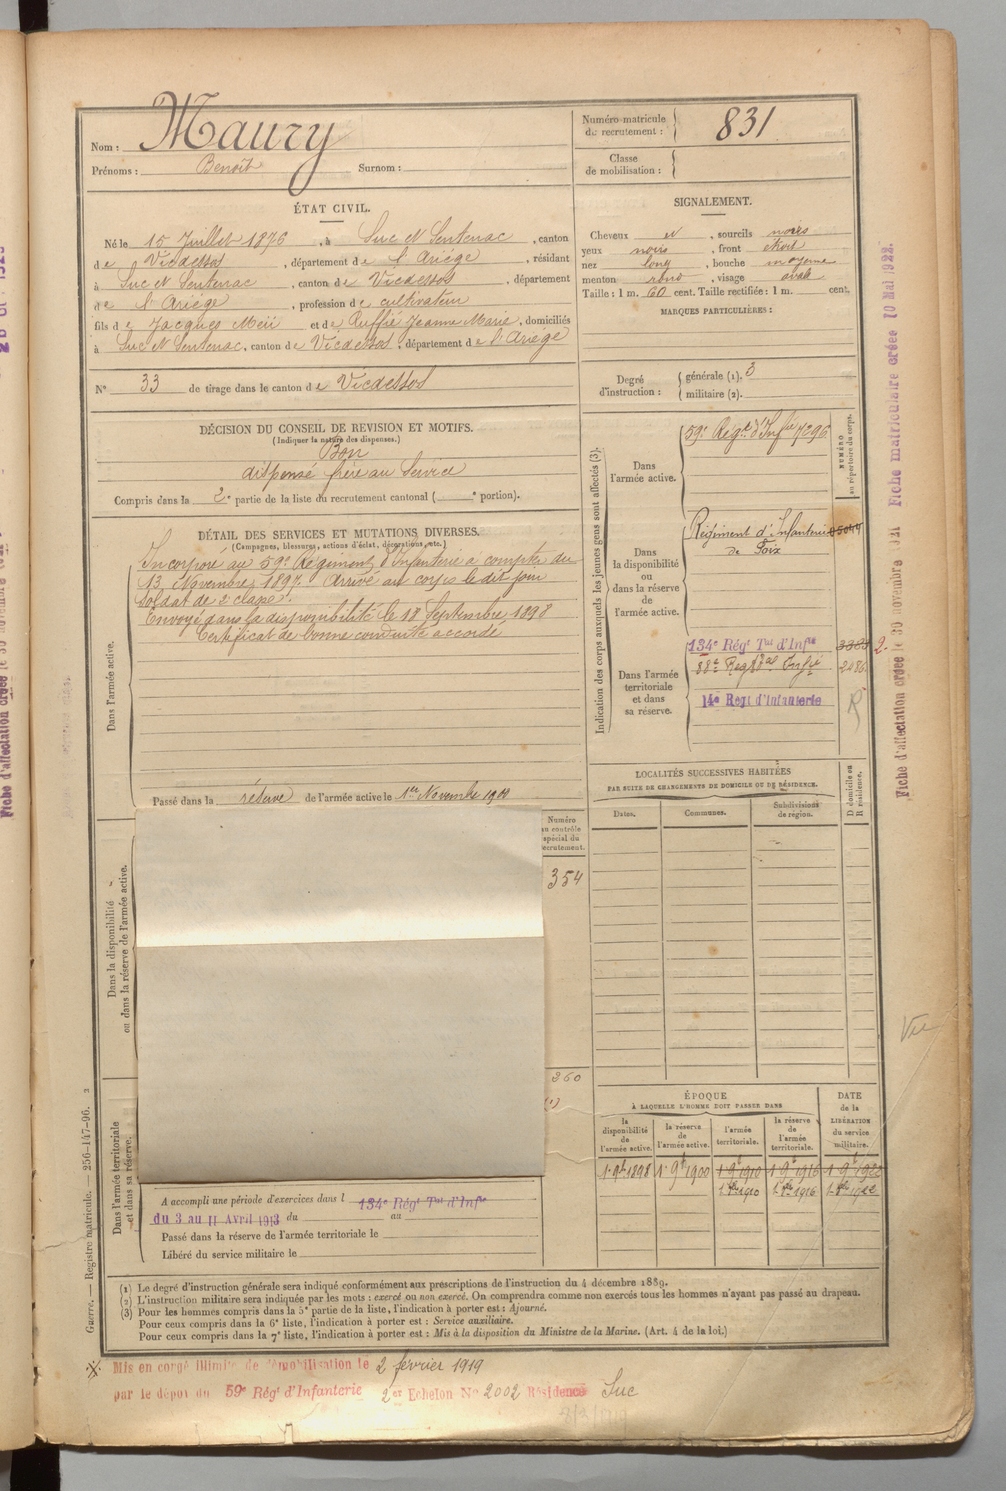 Nom : Maury
Prénoms : Benoît Surnom :
Numéro matricule du recrutement : 831
Classe de mobilisation :
ÉTAT CIVIL.
Né le 15 Juillet 1876, à Suc et Sentenac, canton
de Vicdessos, département de l'Ariège, résidant
à Suc et Sentenac, canton de Vicdessos, département
de l'Ariège, profession de cultivateur
fils de Jacques Meii et de Ruffié Jeanne Marie, domiciliés
à Suc et Sentenac, canton de Vicdessos, département de l'Ariège
N° 33 de tirage dans le canton de Vicdessos
SIGNALEMENT.
Cheveux et, sourcils noirs
yeux noirs, front étroit
nez long, bouche moyenne
menton rond, visage ovale
Taille : 1 m. 60 cent. Taille rectifiée : 1 m. cent.
MARQUES PARTICULIÈRES :
Degré d'instruction : générale (1). 3
militaire (2).
DÉCISION DU CONSEIL DE REVISION ET MOTIFS.
(Indiquer la nature des dispenses.)
Bon
dispensé frère au Service
Compris dans la 2e partie de la liste du recrutement cantonal ( e portion).
DÉTAIL DES SERVICES ET MUTATIONS DIVERSES.
(Campagnes, blessures, actions d'éclat, décorations, etc.)
Dans l'armée active.
Incorporé au 59e Régiment d'Infanterie à compter du
13 Novembre 1897. Arrivé au corps le dit jour
Soldat de 2e classe.
Envoyé dans la disponibilité le 18 Septembre 1898
Certificat de bonne conduite accordé
Passé dans la réserve de l'armée active le 1er Novembre 1900
Indication des corps auxquels les jeunes gens sont affectés (3).
NUMÉRO au répertoire du corps.
Dans l'armée active.
59e Régt d'Infie 7296
Dans la disponibilité ou dans la réserve de l'armée active.
Régiment d'Infanterie
de Foix
Dans l'armée territoriale et dans sa réserve.
134e Régt Tal d'Infie
14e Régt d'Infanterie
LOCALITÉS SUCCESSIVES HABITÉES
PAR SUITE DE CHANGEMENTS DE DOMICILE OU DE RÉSIDENCE.
Dates. Communes. Subdivisions de région. D domicile ou R résidence.
Dans la disponibilité ou dans la réserve de l'armée active.
Numéro au contrôle spécial du recrutement.
354
360
(1)
ÉPOQUE
À LAQUELLE L'HOMME DOIT PASSER DANS
la disponibilité de l'armée active.
la réserve de l'armée active.
l'armée territoriale.
la réserve de l'armée territoriale.
DATE de la LIBÉRATION du service militaire.
1 9bre 1898 1 9bre 1900 1 9bre 1910 1 9bre 1916 1 9bre 1922
Dans l'armée territoriale et dans sa réserve.
A accompli une période d'exercices dans l 134e Régt Tal d'Infie
du 3 au 11 Avril 1913 du au
Passé dans la réserve de l'armée territoriale le
Libéré du service militaire le
(1) Le degré d'instruction générale sera indiqué conformément aux prescriptions de l'instruction du 4 décembre 1889.
(2) L'instruction militaire sera indiquée par les mots : exercé ou non exercé. On comprendra comme non exercés tous les hommes n'ayant pas passé au drapeau.
(3) Pour les hommes compris dans la 5e partie de la liste, l'indication à porter est : Ajourné.
Pour ceux compris dans la 6e liste, l'indication à porter est : Service auxiliaire.
Pour ceux compris dans la 7e liste, l'indication à porter est : Mis à la disposition du Ministre de la Marine. (Art. 4 de la loi.)
Mis en congé illimité de démobilisation le 2 février 1919
par le dépôt du 59e Régt d'Infanterie 2er Echelon No 2002 Résidence Suc
Guerre. — Registre matricule. — 256-147-96.
Fiche matriculaire créée 10 Mai 1922.
Fiche d'affectation créée le 30 novembre 1921
Vu